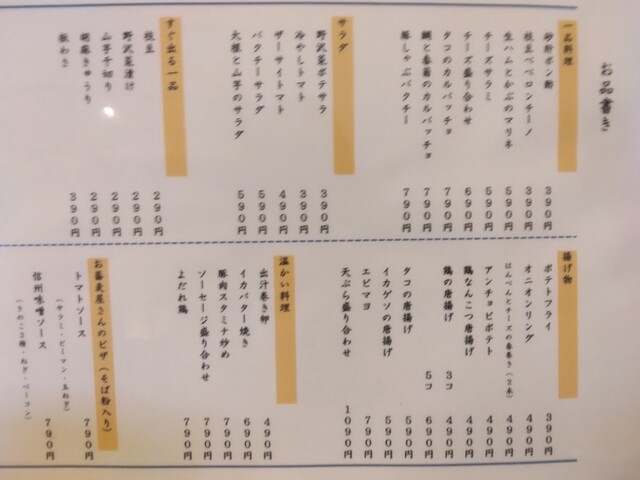 お品書き
一品料理
砂肝ポン酢 390円
枝豆ペペロンチーノ 390円
生ハムとかぶのマリネ 590円
チーズサラミ 590円
チーズ盛り合わせ 690円
タコのカルパッチョ 790円
鯛と春菊のカルパッチョ 790円
豚しゃぶパクチー 790円
サラダ
野沢菜ポテサラ 390円
冷やしトマト 390円
ザーサイトマト 490円
パクチーサラダ 590円
大根と山芋のサラダ 590円
すぐ出る一品
枝豆 290円
野沢菜漬け 290円
山芋千切り 290円
胡麻きゅうり 290円
板わさ 390円
揚げ物
ポテトフライ 390円
オニオンリング 490円
はんぺんとチーズの春巻き(2本) 490円
アンチョビポテト 490円
鶏なんこつ唐揚げ 490円
鶏の唐揚げ 3コ 490円
5コ 690円
タコの唐揚げ 590円
イカゲソの唐揚げ 590円
エビマヨ 790円
天ぷら盛り合わせ 1090円
温かい料理
出汁巻き卵 490円
イカバター焼き 690円
豚肉スタミナ炒め 790円
ソーセージ盛り合わせ 790円
よだれ鶏 790円
お蕎麦屋さんのピザ(そば粉入り)
トマトソース 790円
(サラミ・ピーマン・玉ねぎ)
信州味噌ソース 790円
(きのこ3種・ねぎ・ベーコン)